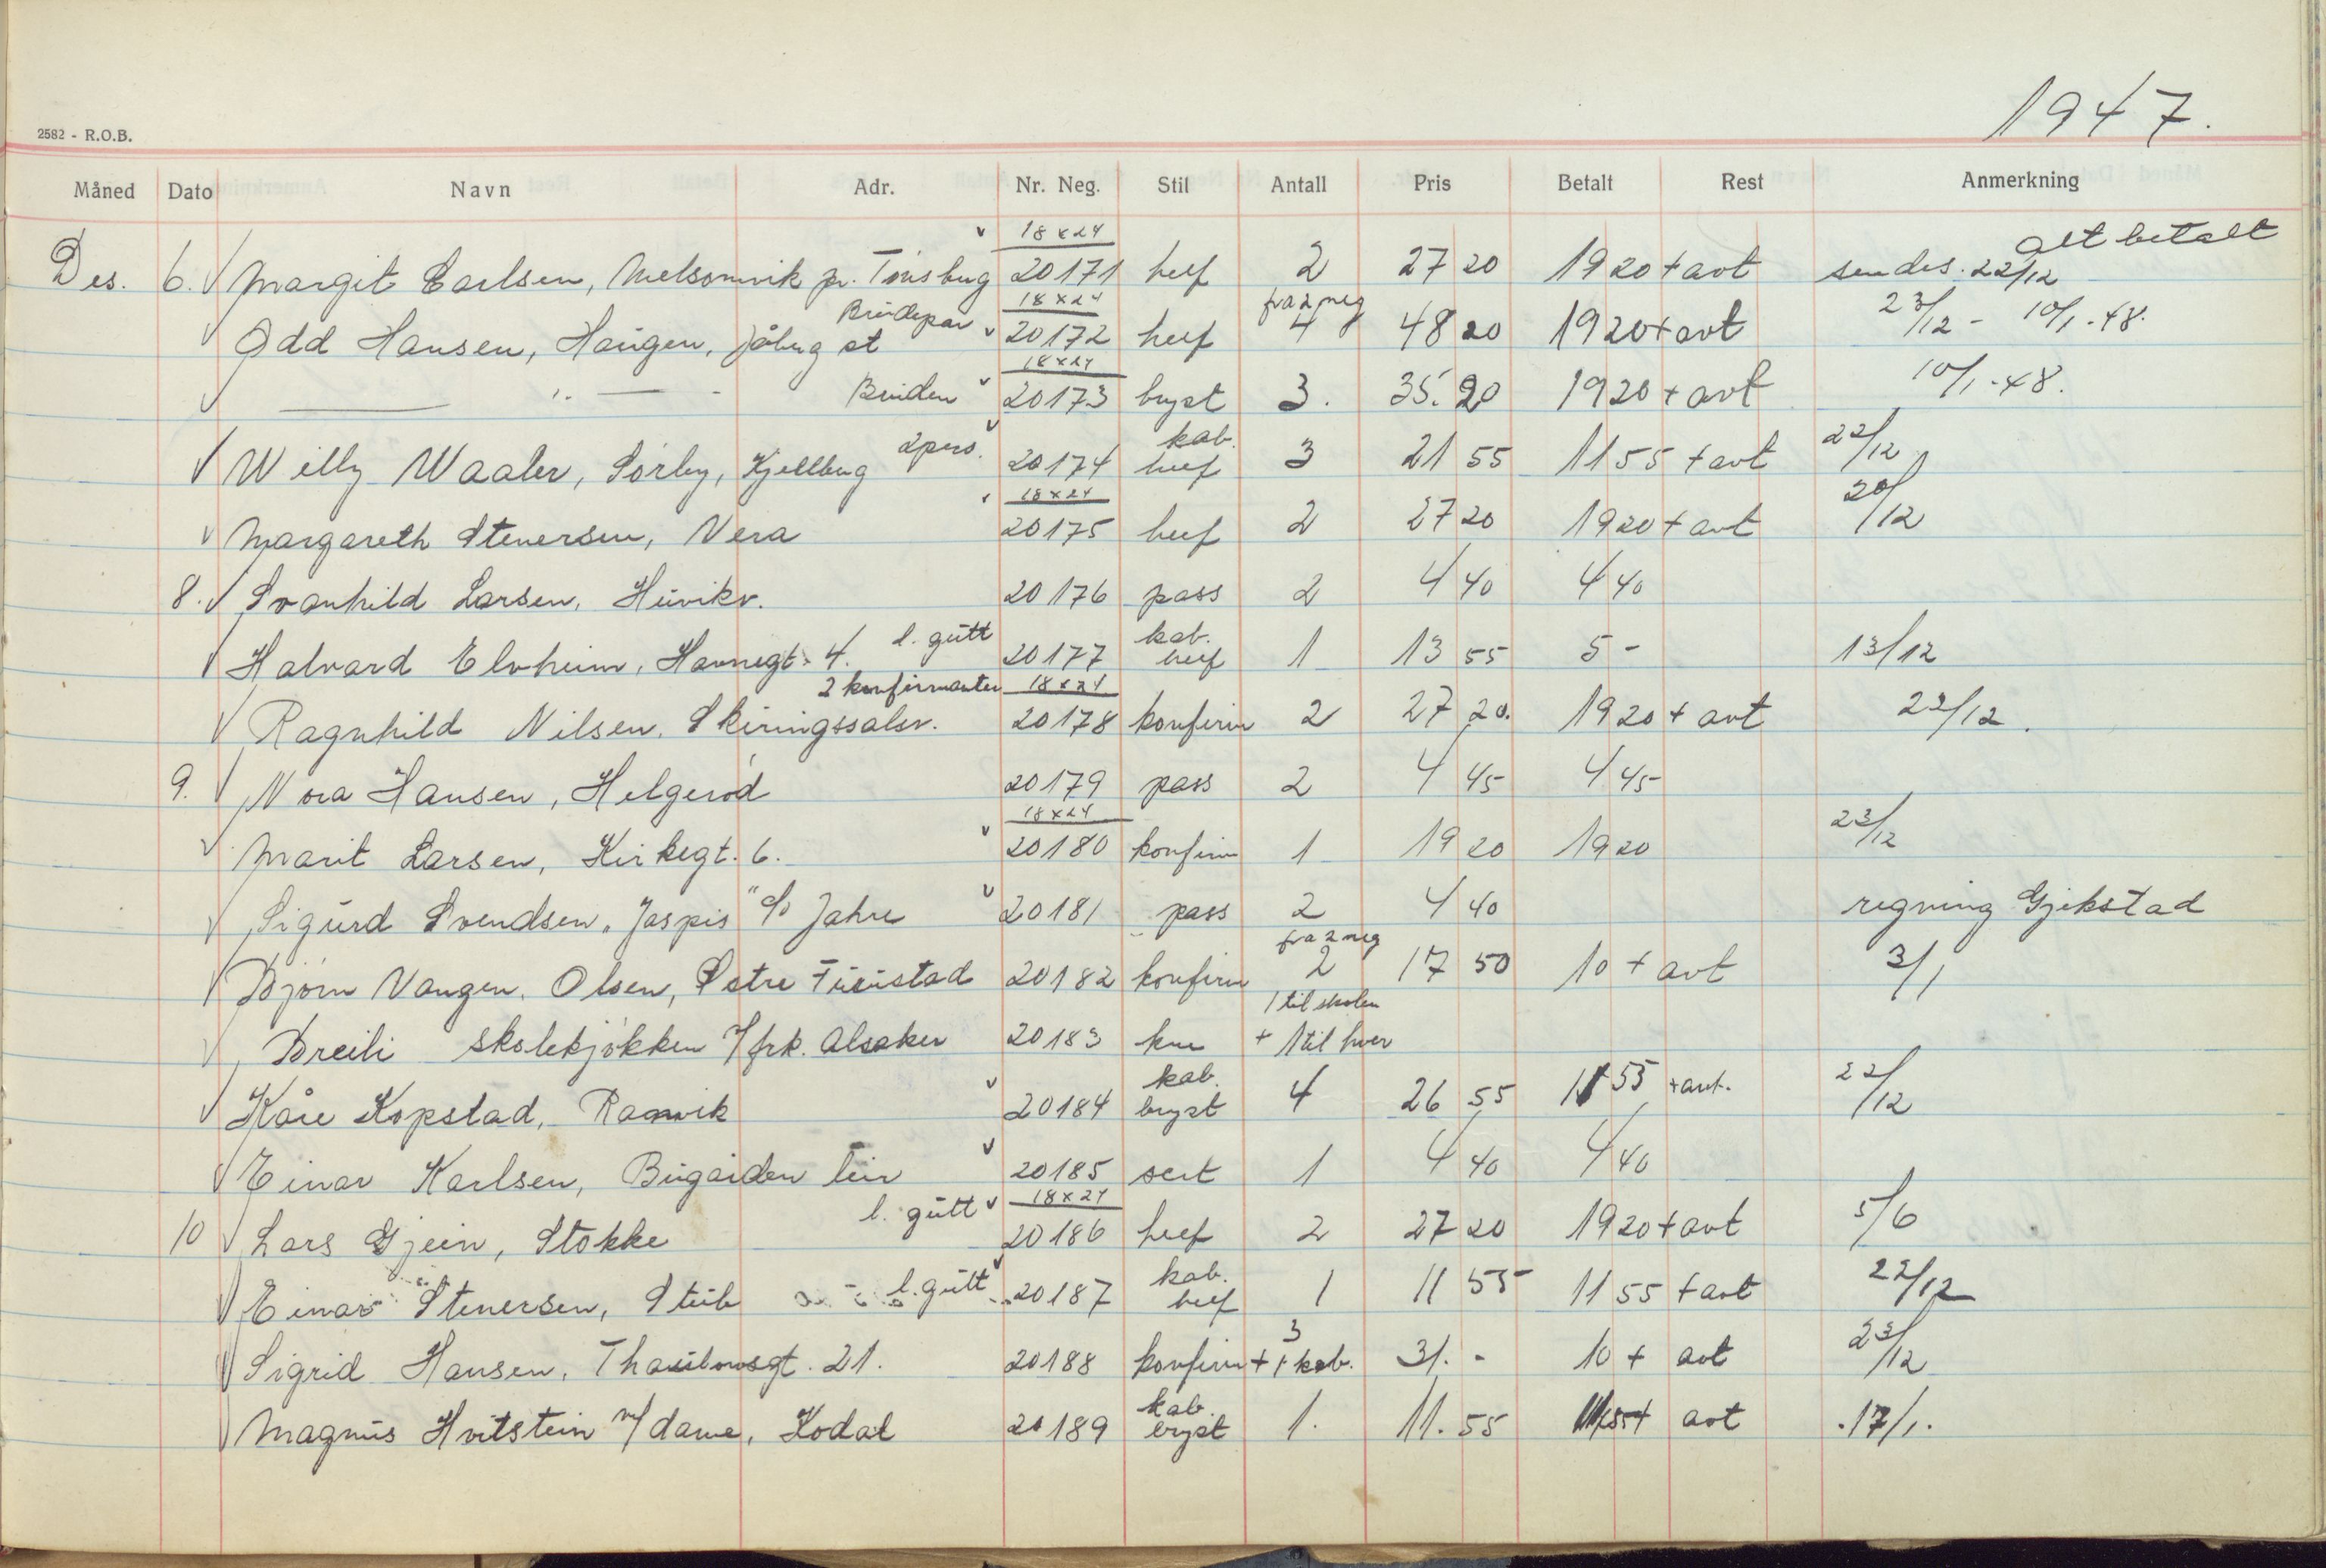 1947.
2582 - R.O.B.
Måned Dato Navn Adr. Nr. Neg. Stil Antall Pris Betalt Rest Anmerkning
18x24 alt betalt
Des. 6. Margit Carlsen, Melsomvik pr. Tönsberg 20171 heef 2 27 20 19 20 + avt sendes. 22/12
Brüdepar 18x24 fra 2 neg
Odd Hansen, Haügen, Jåberg st 20172 heef 4 48 20 19 20 + avt 23/12 - 10/1-48.
18x24
— " — Brüden 20173 bryst 3. 35. 20 19 20 + avt 10/1-48.
2 pers. kab.
Willy Waaler, Sörby, Kjellberg 20174 heef 3 21 55 11 55 + avt 22/12
18x24
Margareth Stenersen, Vera 20175 heef 2 27 20 19 20 + avt 20/12
8. Svanhild Larsen, Hüvikv. 20176 pass 2 4 40 4 40
l. gütt kab.
Halvard Elvheim, Havnegt. 4. 20177 heef 1 13 55 5 - 13/12
2 konfirmanter 18x24
Ragnhild Nilsen, Skiringssalsv. 20178 konfirm 2 27 20. 19 20 + avt 22/12.
9. Nora Hansen, Helgeröd 20179 pass 2 4 45 4 45
18x24
Marit Larsen, Kirkegt. 6. 20180 konfirm 1 19 20 19 20 23/12
Sigürd Svendsen, "Jaspis" c/o Jahre 20181 pass 2 4 40 regning Gjekstad
fra 2 neg
Björn Vangen Olsen, Östre 20182 konfirm 2 17 50 10 + avt 3/1
1 til skolen
Breili skolekjökken v/ frk. Alsaker 20183 kne + 1 til hver
kab.
Kåre Kopstad, Ramvik 20184 bryst 4 26 55 11 55 + avt. 22/12
Einar Karlsen, Bügården leir 20185 sert 1 4 40 4 40
l. gütt 18x24
10 Lars Gjein, Stokke 20186 heef 2 27 20 19 20 + avt 5/6
l. gütt kab.
Einar Stenersen, Stüb 20187 heef 1 11 55 11 55 + avt 22/12
3
Sigrid Hansen, Thaülowsgt. 21. 20188 konfirm + 1 kab. 31. - 10 + avt 23/12
kab
Magnüs Hvitstein m/ dame, Kodal 20189 bryst 1. 11. 55 11 55 + avt 17/1.